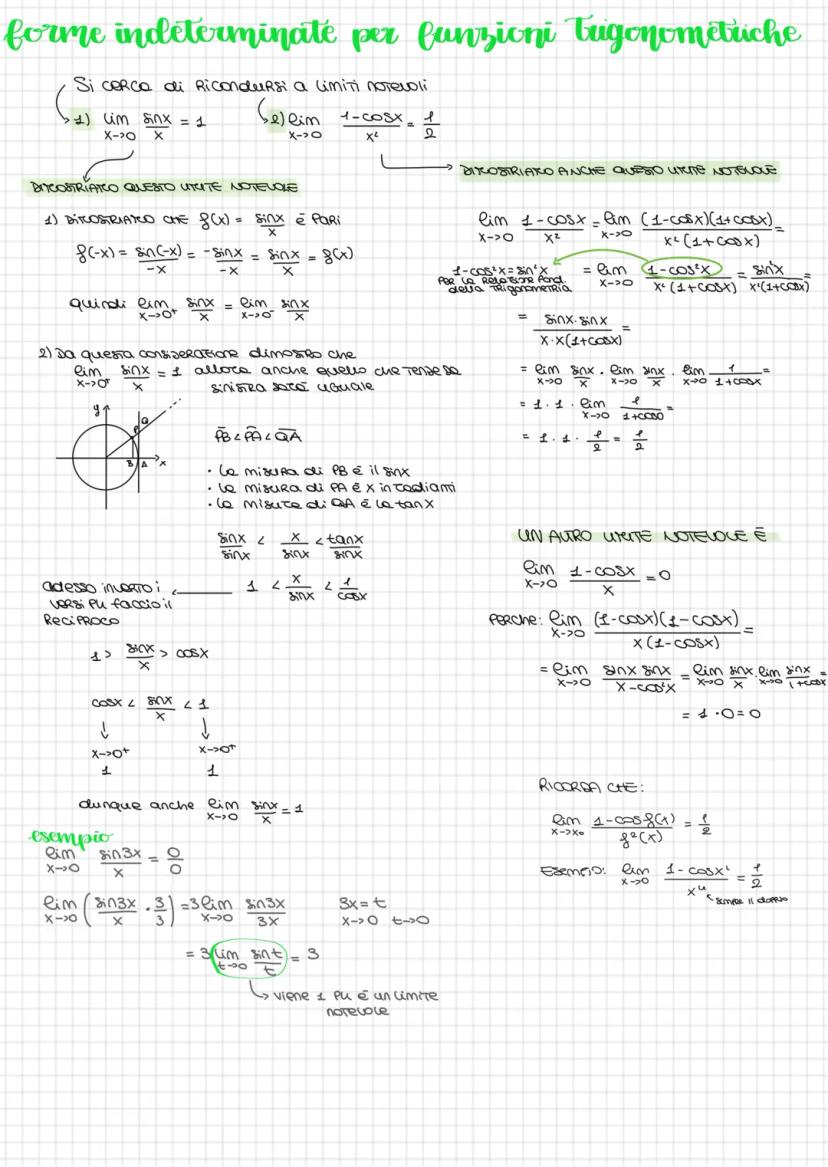 forme indeterminate per funzioni trigonometriche
Si cerca di ricondursi a limiti notevoli
1) lim x→0 sinx/x = 1
2) lim x→0 1-cosx/x² = 1/2
DIMOSTRIAMO QUESTO LIMITE NOTEVOLE
1) DIMOSTRIAMO CHE f(x) = sinx/x È PARI
f(-x) = sin(-x)/-x = -sinx/-x = sinx/x = f(x)
quindi lim x→0⁺ sinx/x = lim x→0⁻ sinx/x
2) Da questa considerazione dimostro che
lim x→0⁺ sinx/x = 1 allora anche quello che tende da
sinistra sarà uguale
y
Q
P
B A x
PB < PA < QA
• la misura di PB è il sinx
• la misura di PA è x in radianti
• la misura di QA è la tanx
sinx/sinx < x/sinx < tanx/sinx
adesso inverto i
versi più faccio il
reciproco
1 < x/sinx < 1/cosx
1 > sinx/x > cosx
cosx < sinx/x < 1
x→0⁺ x→0⁺
1 1
dunque anche lim x→0 sinx/x = 1
esempio
lim x→0 sin3x/x = 0/0
lim x→0 (sin3x/x · 3/3) = 3 lim x→0 sin3x/3x
3x = t
x→0 t→0
= 3 lim t→0 sint/t = 3
viene 1 più è un limite
notevole
DIMOSTRIAMO ANCHE QUESTO LIMITE NOTEVOLE
lim x→0 1-cosx/x² = lim x→0 (1-cosx)(1+cosx)/x²(1+cosx) =
1-cos²x = sin²x
per la relazione fond.
della trigonometria
= lim x→0 1-cos²x/x²(1+cosx) = sin²x/x²(1+cosx) =
= sinx·sinx/x·x(1+cosx) =
= lim x→0 sinx/x · lim x→0 sinx/x · lim x→0 1/1+cosx =
= 1 · 1 · lim x→0 1/1+cos0 =
= 1 · 1 · 1/2 = 1/2
UN ALTRO LIMITE NOTEVOLE È
lim x→0 1-cosx/x = 0
PERCHE: lim x→0 (1-cosx)(1-cosx)/x(1-cosx) =
= lim x→0 sinx sinx/x-cos²x = lim x→0 sinx/x · lim x→0 sinx/1+cosx =
= 1 · 0 = 0
RICORDA CHE:
lim x→x₀ 1-cosf(x)/f²(x) = 1/2
ESEMPIO: lim x→0 1-cosx²/x⁴ = 1/2
sempre il doppio